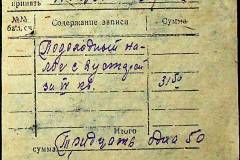 принять
№№ бал. сч.
Содержание записи
Сумма
Подоходный на-
лог с кустарей
за IV кв.
31.50
Итого
сумма Тридцать один 50